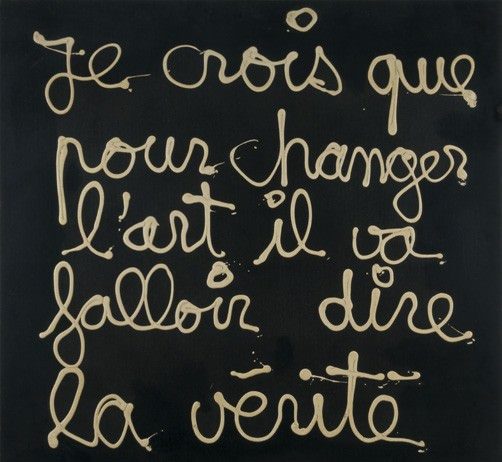 Je crois que
pour changer
l'art il va
falloir dire
la vérité